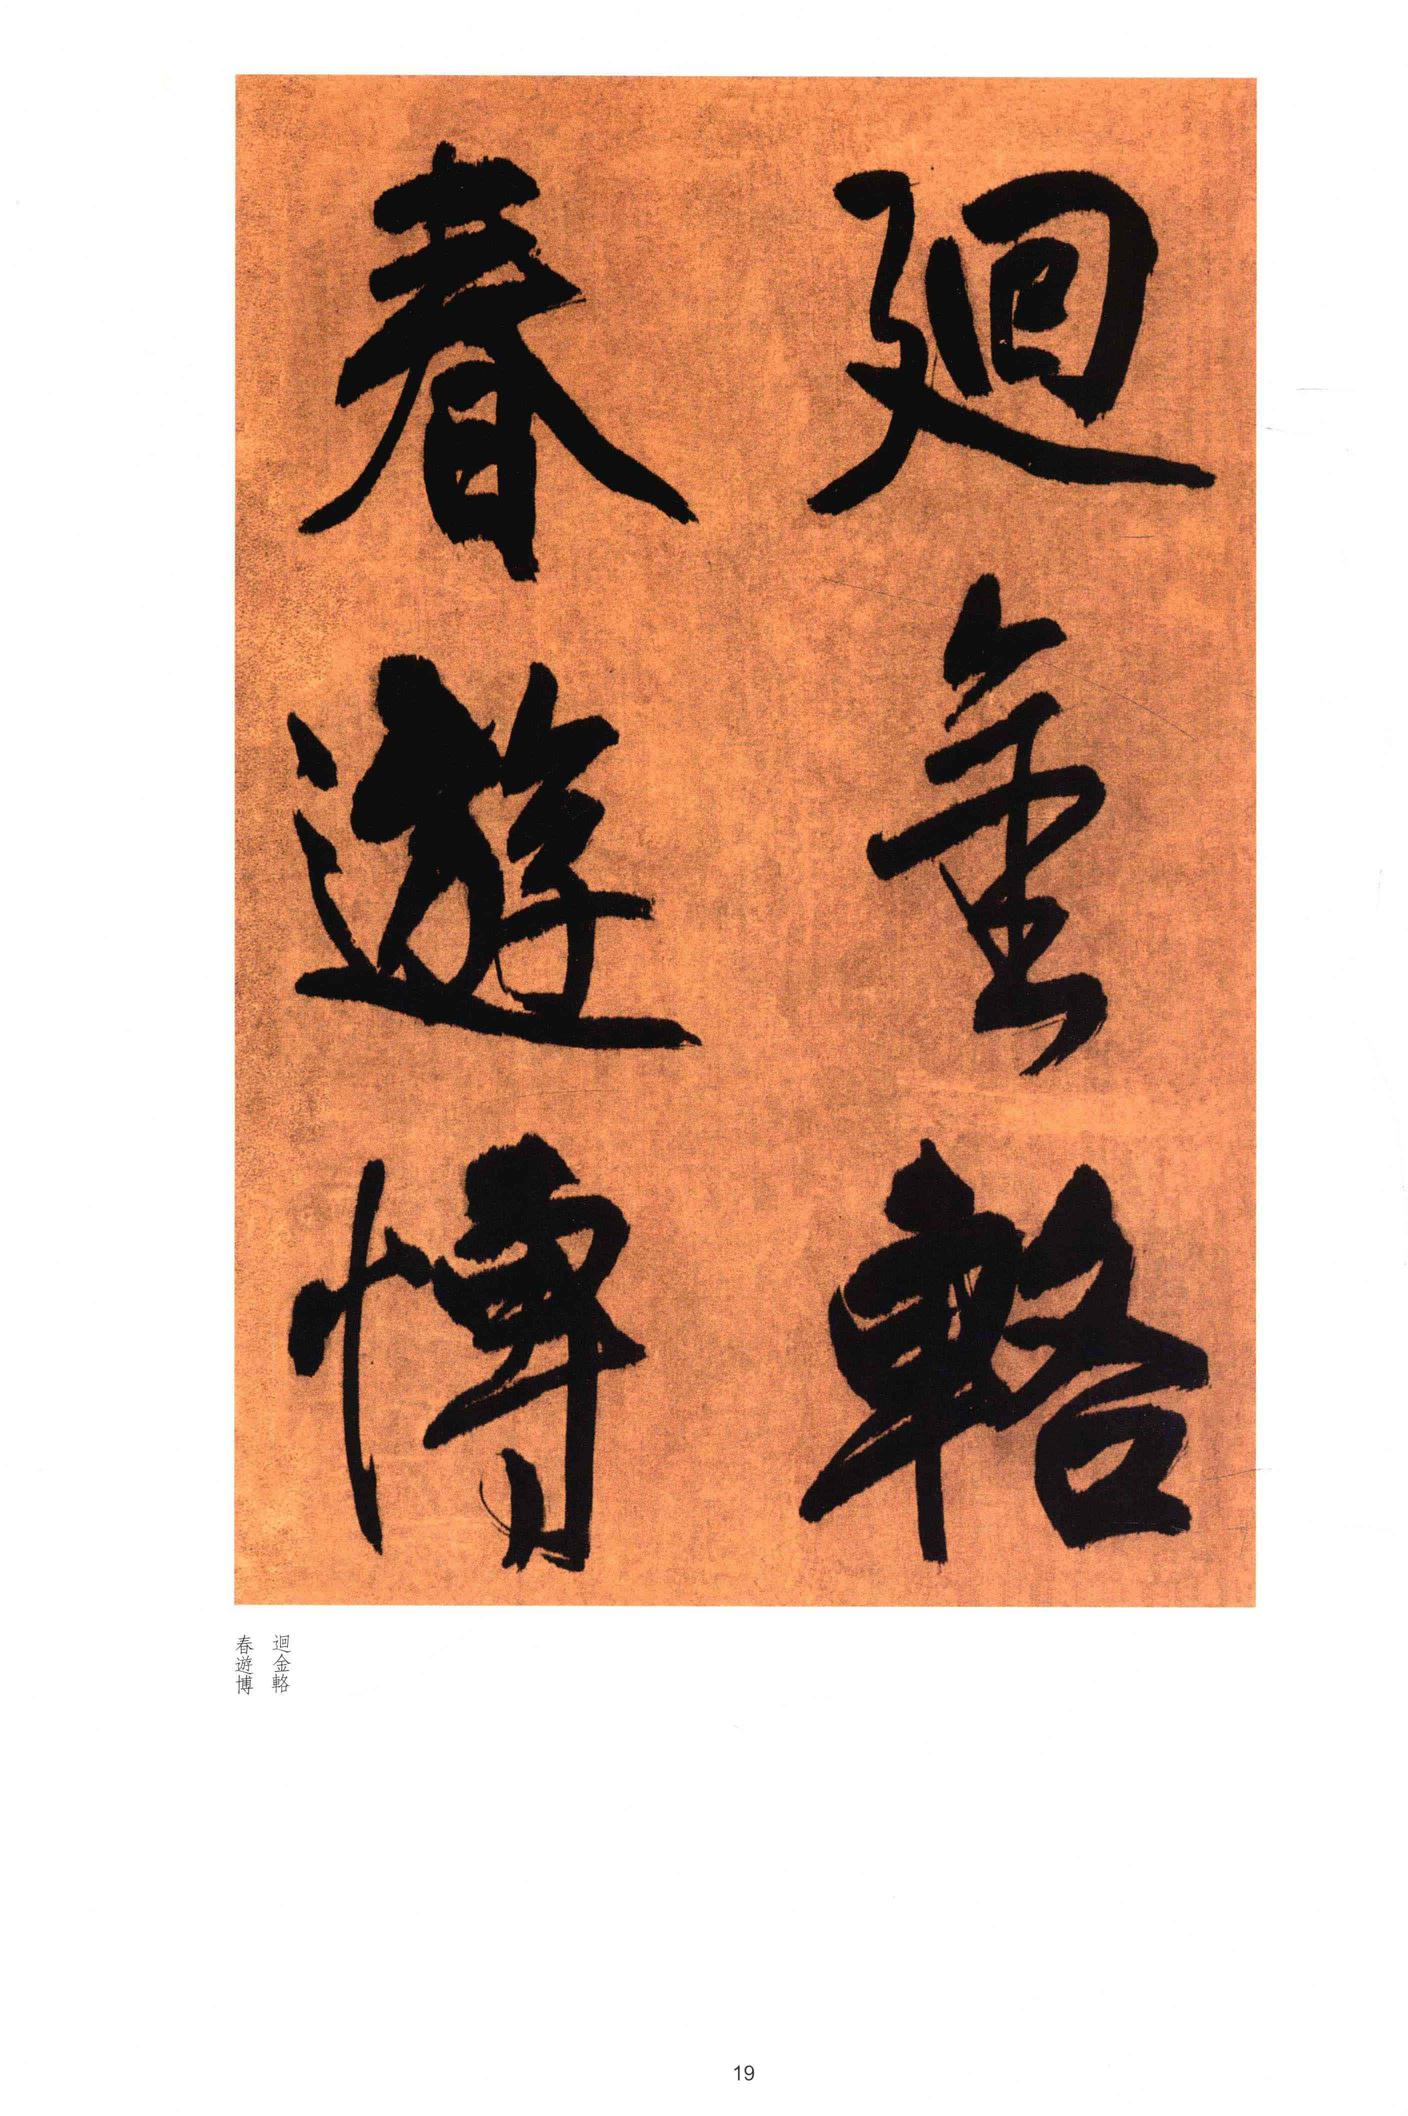 廻金輅
春遊博
迴金輅
春遊博
19